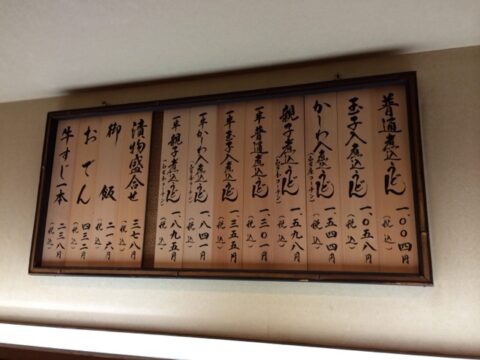 普通煮込うどん 一、〇〇四円(税込)
玉子入煮込うどん 一、〇五八円(税込)
かしわ入煮込うどん 一、五四四円(税込)
親子煮込うどん 一、五九八円(税込)
一半普通煮込うどん 一、三〇一円(税込)
一半玉子入煮込うどん 一、三五五円(税込)
一半かしわ入煮込うどん 一、八四一円(税込)
一半親子煮込うどん 一、八九五円(税込)
漬物盛合せ 三七八円(税込)
御飯 二一六円(税込)
おでん 四三二円(税込)
牛すじ一本 二三八円(税込)